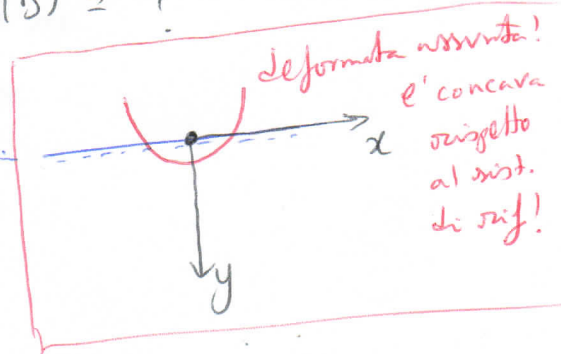 (B) =
deformata assunta!
e' concava
rispetto
al sist.
di rif!
x
y